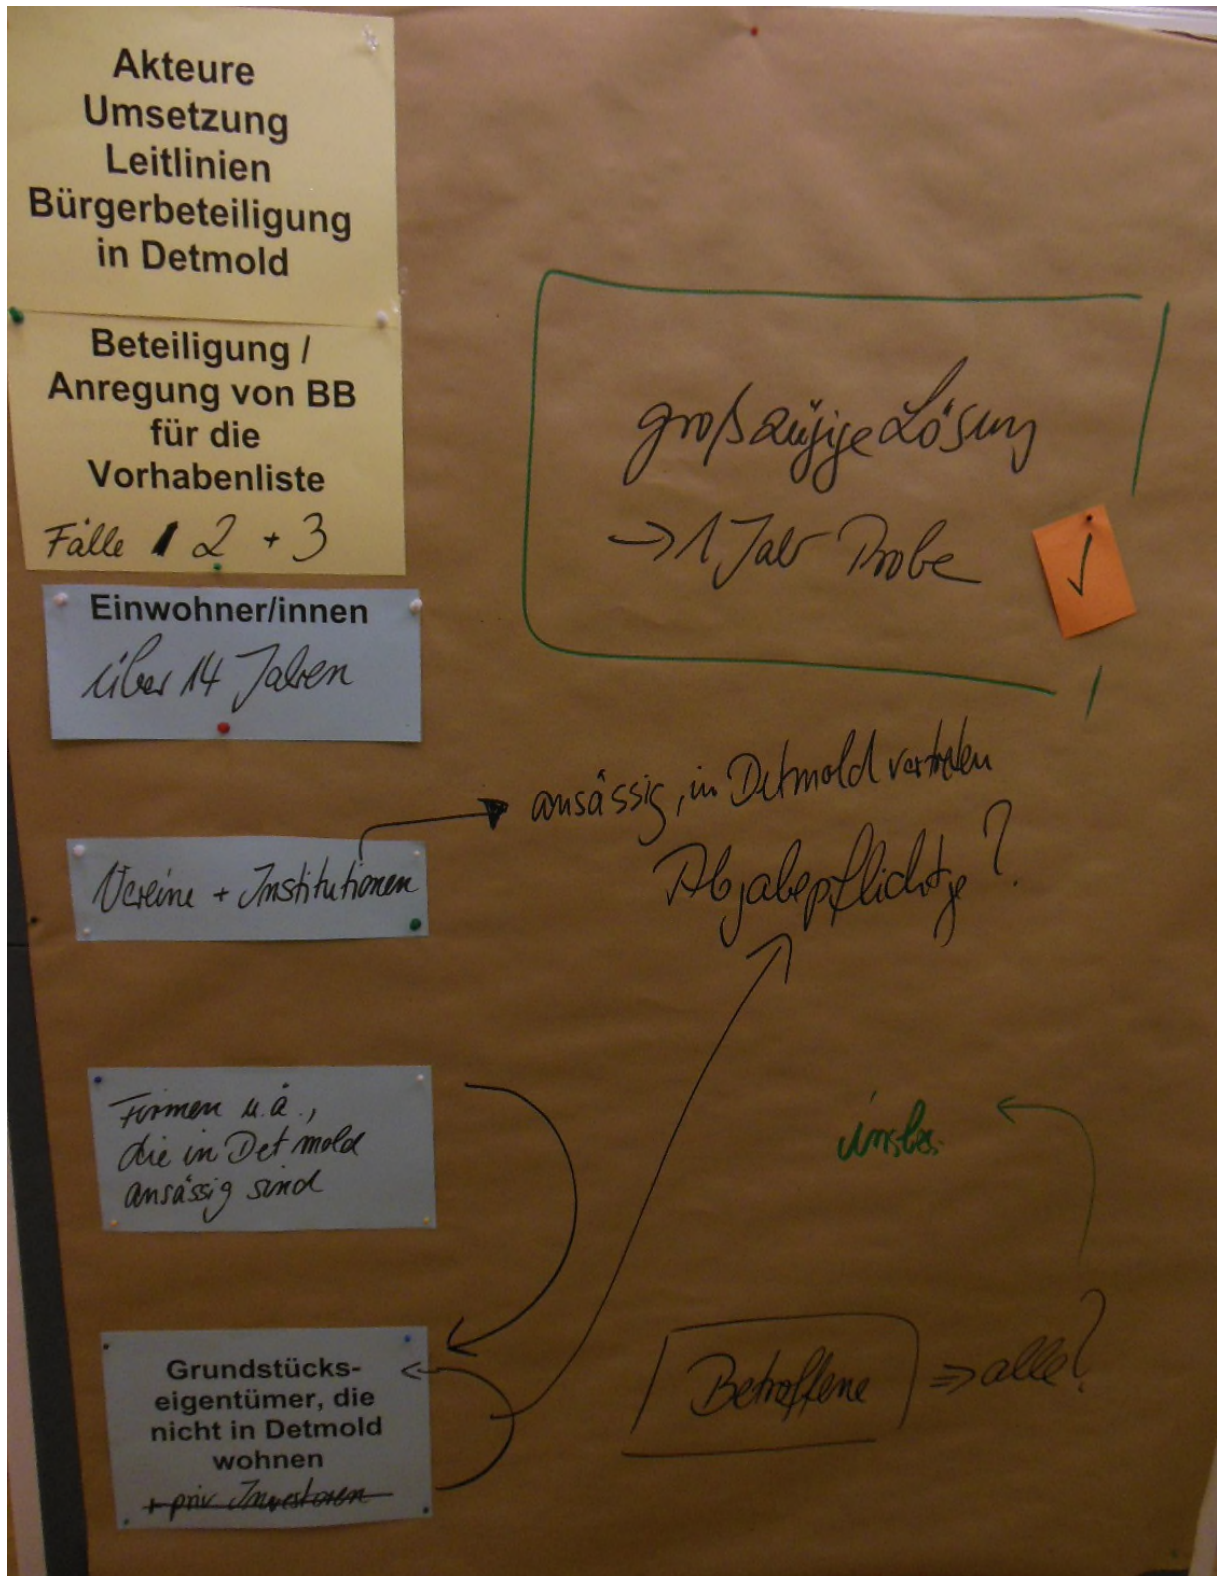 Akteure
Umsetzung
Leitlinien
Bürgerbeteiligung
in Detmold
Beteiligung /
Anregung von BB
für die
Vorhabenliste
Fälle 2 + 3
Einwohner/innen
über 14 Jahren
Vereine + Institutionen
Firmen u.ä.,
die in Detmold
ansässig sind
Grundstücks-
eigentümer, die
nicht in Detmold
wohnen
+ priv Investoren
großzügige Lösung
→ 1 Jahr Probe
✓
ansässig, in Detmold vertreten
Abgabepflichtige?
insbes.
Betroffene ⇒ alle?